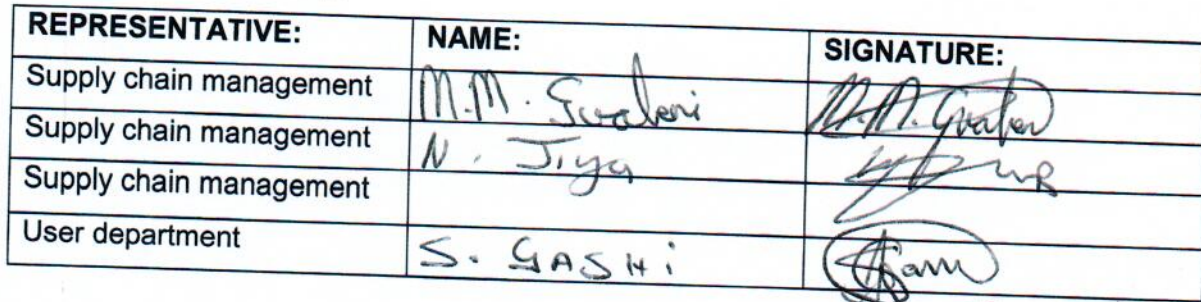 REPRESENTATIVE: NAME: SIGNATURE:
Supply chain management M.M. Gwabeni M.M. Gwabeni
Supply chain management N. Jiya
Supply chain management
User department S. GASHi